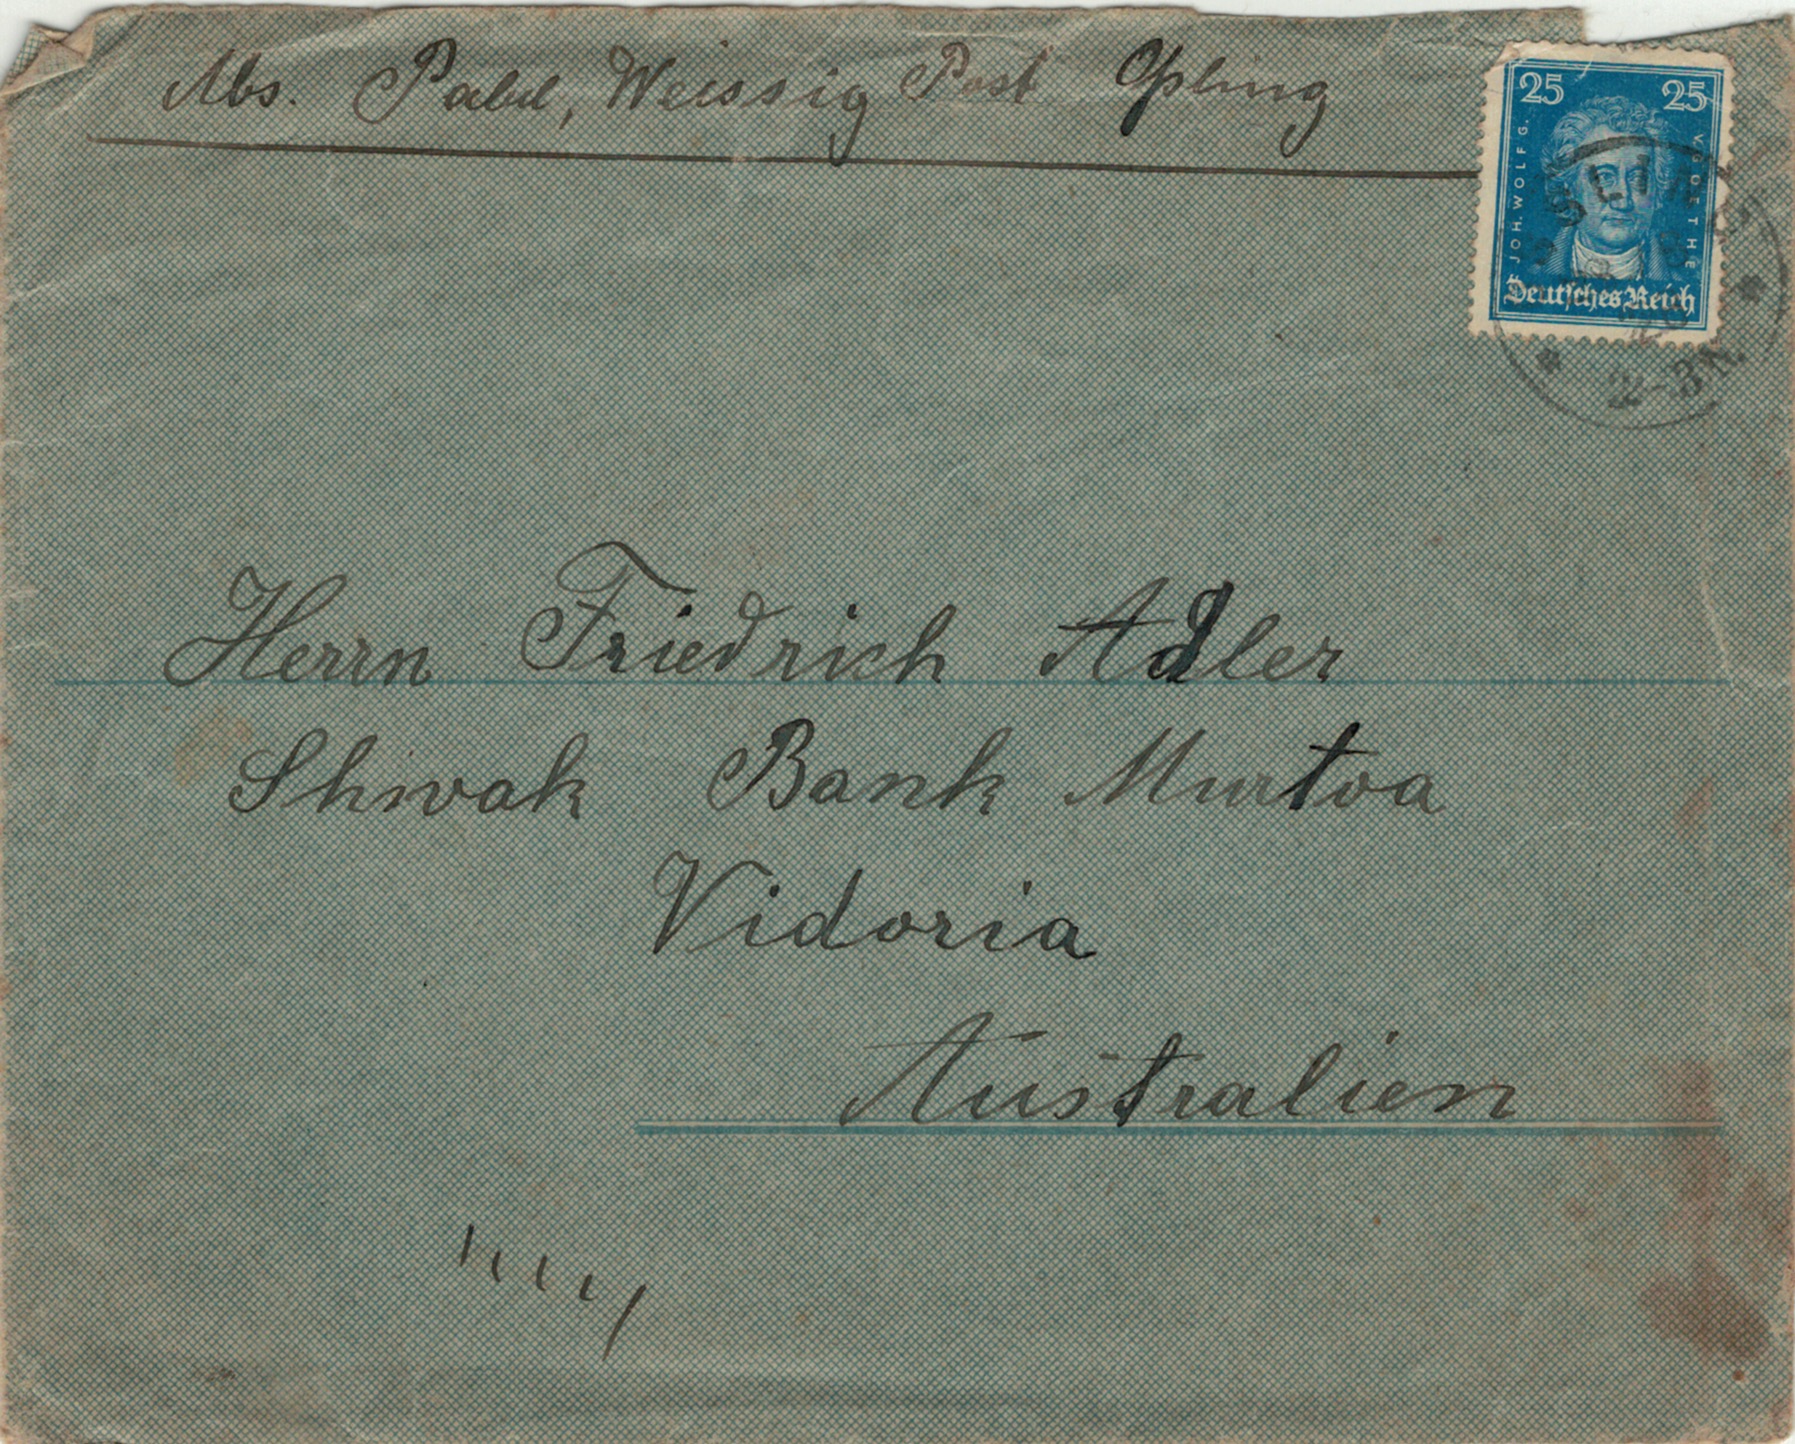 Abs. Pabel, Weissig Post Ösling
25 25
JOH. WOLFG. V. GOETHE
Deutsches Reich
2-3 N.
Herrn Friedrich Adler
Shivak Bank Murtoa
Vidoria
Australien